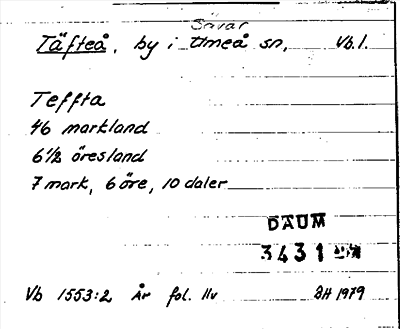 Sävar
Täfteå, by i Umeå sn, Vb.l.
Teffta
46 markland
6 1/2 öresland
7 mark, 6 öre, 10 daler
DAUM
3431
Vb 1553:2 År fol. 11v DH 1979